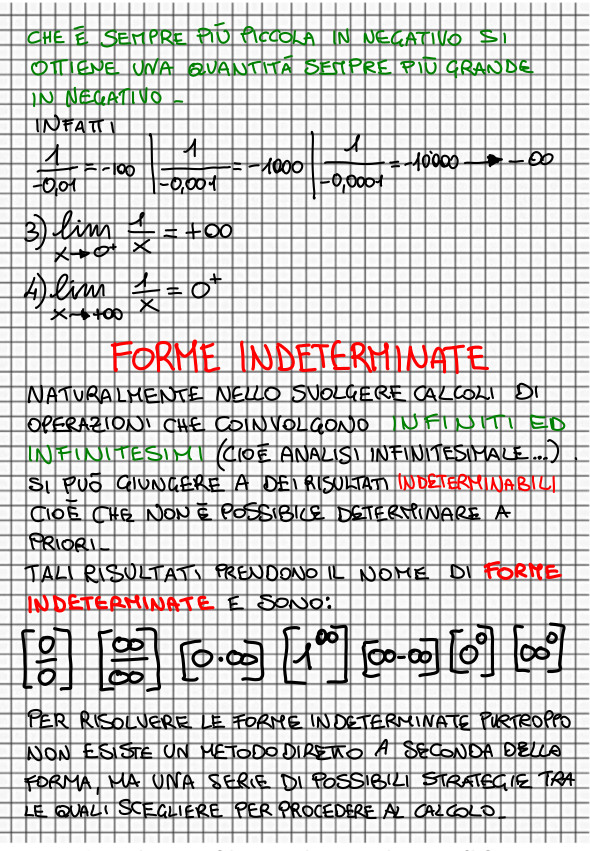 CHE È SEMPRE PIÙ PICCOLA IN NEGATIVO SI
OTTIENE UNA QUANTITÀ SEMPRE PIÙ GRANDE
IN NEGATIVO.
INFATTI
1/-0,01 = -100 | 1/-0,001 = -1000 | 1/-0,0001 = -10000 → -∞
3) lim x→0⁺ 1/x = +∞
4) lim x→+∞ 1/x = 0⁺
FORME INDETERMINATE
NATURALMENTE NELLO SVOLGERE CALCOLI DI
OPERAZIONI CHE COINVOLGONO INFINITI ED
INFINITESIMI (CIOÈ ANALISI INFINITESIMALE...).
SI PUÒ GIUNGERE A DEI RISULTATI INDETERMINABILI
CIOÈ CHE NON È POSSIBILE DETERMINARE A
PRIORI.
TALI RISULTATI PRENDONO IL NOME DI FORME
INDETERMINATE E SONO:
[0/0] [∞/∞] [0·∞] [1^∞] [∞-∞] [0⁰] [∞⁰]
PER RISOLVERE LE FORME INDETERMINATE PURTROPPO
NON ESISTE UN METODO DIRETTO A SECONDA DELLA
FORMA, MA UNA SERIE DI POSSIBILI STRATEGIE TRA
LE QUALI SCEGLIERE PER PROCEDERE AL CALCOLO.